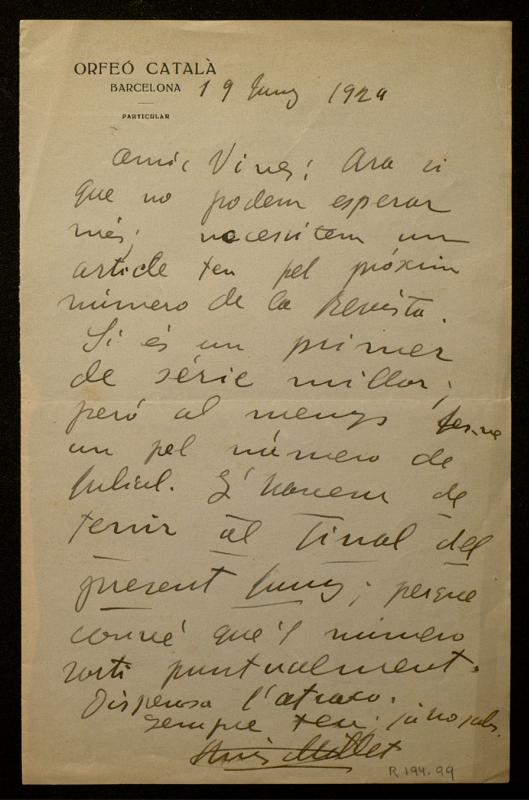 ORFEÓ CATALÀ
BARCELONA
PARTICULAR
19 Juny 1924
Amic Vives: Ara si
que no podem esperar
més; necessitem un
article teu pel próxim
número de la Revista.
Si és un primer
de série millor;
peró al menys fes-ne
un pel número de
Juliol. L'havem de
tenir al final del
present Juny; perque
convé que'l número
surti puntualment.
Dispensa l'atraco.
Sempre teu, ja ho sabs.
Lluis Millet
R. 194.99